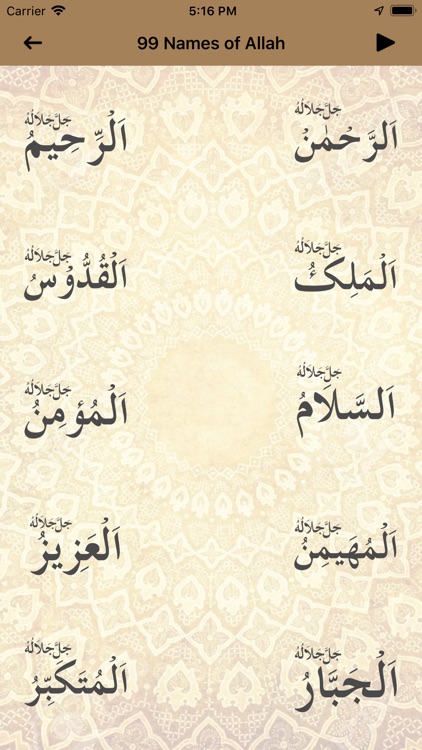 Carrier 5:16 PM
99 Names of Allah
جَلَّ جَلَالُهُ
اَلرَّحْمٰنُ
جَلَّ جَلَالُهُ
اَلْرَّحِيمُ
جَلَّ جَلَالُهُ
اَلْمَلِكُ
جَلَّ جَلَالُهُ
اَلْقُدُّوْسُ
جَلَّ جَلَالُهُ
اَلسَّلَامُ
جَلَّ جَلَالُهُ
اَلْمُؤمِنُ
جَلَّ جَلَالُهُ
اَلْمُهَيمِنُ
جَلَّ جَلَالُهُ
اَلْعَزِيزُ
جَلَّ جَلَالُهُ
اَلْجَبَّارُ
جَلَّ جَلَالُهُ
اَلْمُتَكَبِّرُ